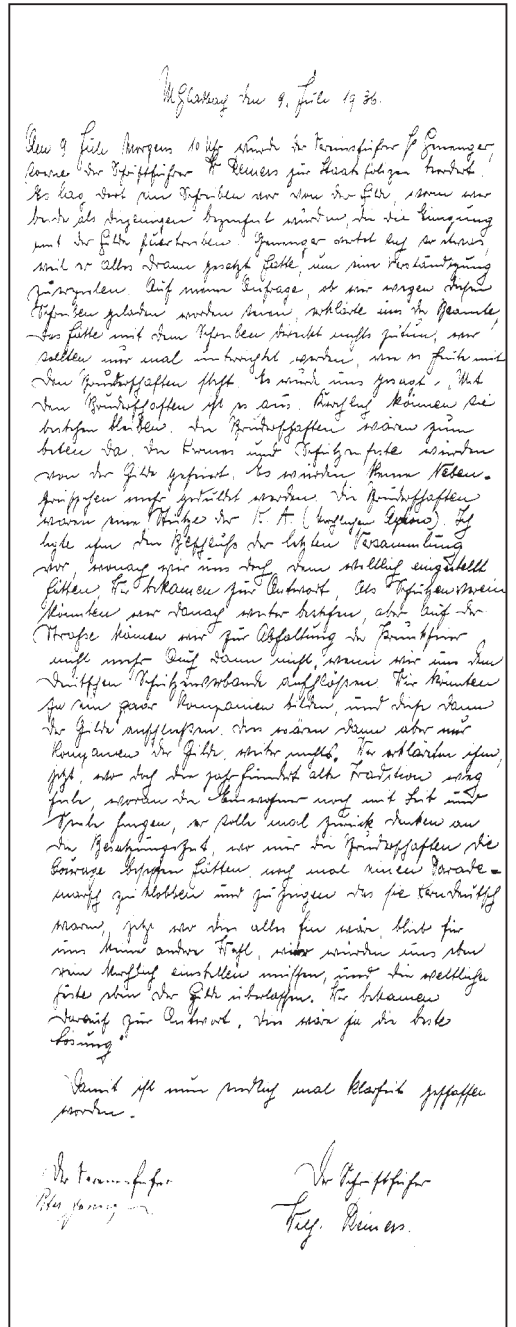 MGladbach den 9. Juli 1936.
Den 9 Juli Morgens 10 Uhr wurde der Vereinsführer P. Gennenger,
sowie der Schriftführer W Reiners zur Staatspolizei beordert.
Es lag dort ein Schreiben vor von der Gilde, worin wir
beide als diejenigen bezeichnet würden, die die Einigung
mit der Gilde Gennenger auf so etwas,
weil er alles daran gesetzt hatte, um eine Verständigung
zu erzielen. Auf meine Anfrage, ob wir wegen diesem
Schreiben geladen worden seien, erklärte uns der Beamte,
das hätte mit dem Schreiben direkt nichts zu tun, wir
sollten nur mal unterrichtet werden, wie es heute mit
den Bruderschaften steht. Es wurde uns gesagt. Mit
den Bruderschaften ist es aus. Kirchlich können sie
bestehen bleiben. Die Bruderschaften wären zum
beten da. Die Kirmes und Schützenfeste würden
von der Gilde gefeiert. Es würden keine Neben-
grüppchen mehr geduldet werden. Die Bruderschaften
wären eine Stütze der K. A. (kirchlichen Aktion). Ich
legte ihm den Beschluß der letzten Versammlung
vor, wonach wir uns doch, dem weltlich eingestellt
hätten. Wir bekamen zur Antwort, Als Schützenverein
könnten wir danach weiter bestehen, aber auf der
Straße kämen wir zur Abhaltung der Prunkfeier
nicht mehr. Auch dann nicht, wenn wir uns dem
deutschen Schützenverbande anschlößen. Wir könnten
ja ein paar Kompanien bilden, und diese dann
der Gilde anschließen. Das wären dann aber nur
Kompanien der Gilde, weiter nichts. Wir erklärten ihm,
jetzt, wo doch die jahrhundert alte Tradition weg
fiele, woran die Einwohner noch mit Leib und
Seele hingen, er solle mal zurück denken an
die Besatzungszeit, wo nur die Bruderschaften die
Courage besessen hätten, noch mal einen Parade-
marsch zu kloppen und zu zeigen das sie kerndeutsch
waren, jetzt wo dies alles hin wäre, blieb für
uns keine andere Wahl, wir würden uns eben
rein kirchlich einstellen müssen, und die weltliche
Feste eben der Gilde überlassen. Wir bekamen
darauf zur Antwort. Dies wäre ja die beste
Lösung"
Damit ist nun endlich mal Klarheit geschaffen
worden.
Der Vereinsführer
Der Schriftführer
Peter
Wilh. Reiners.